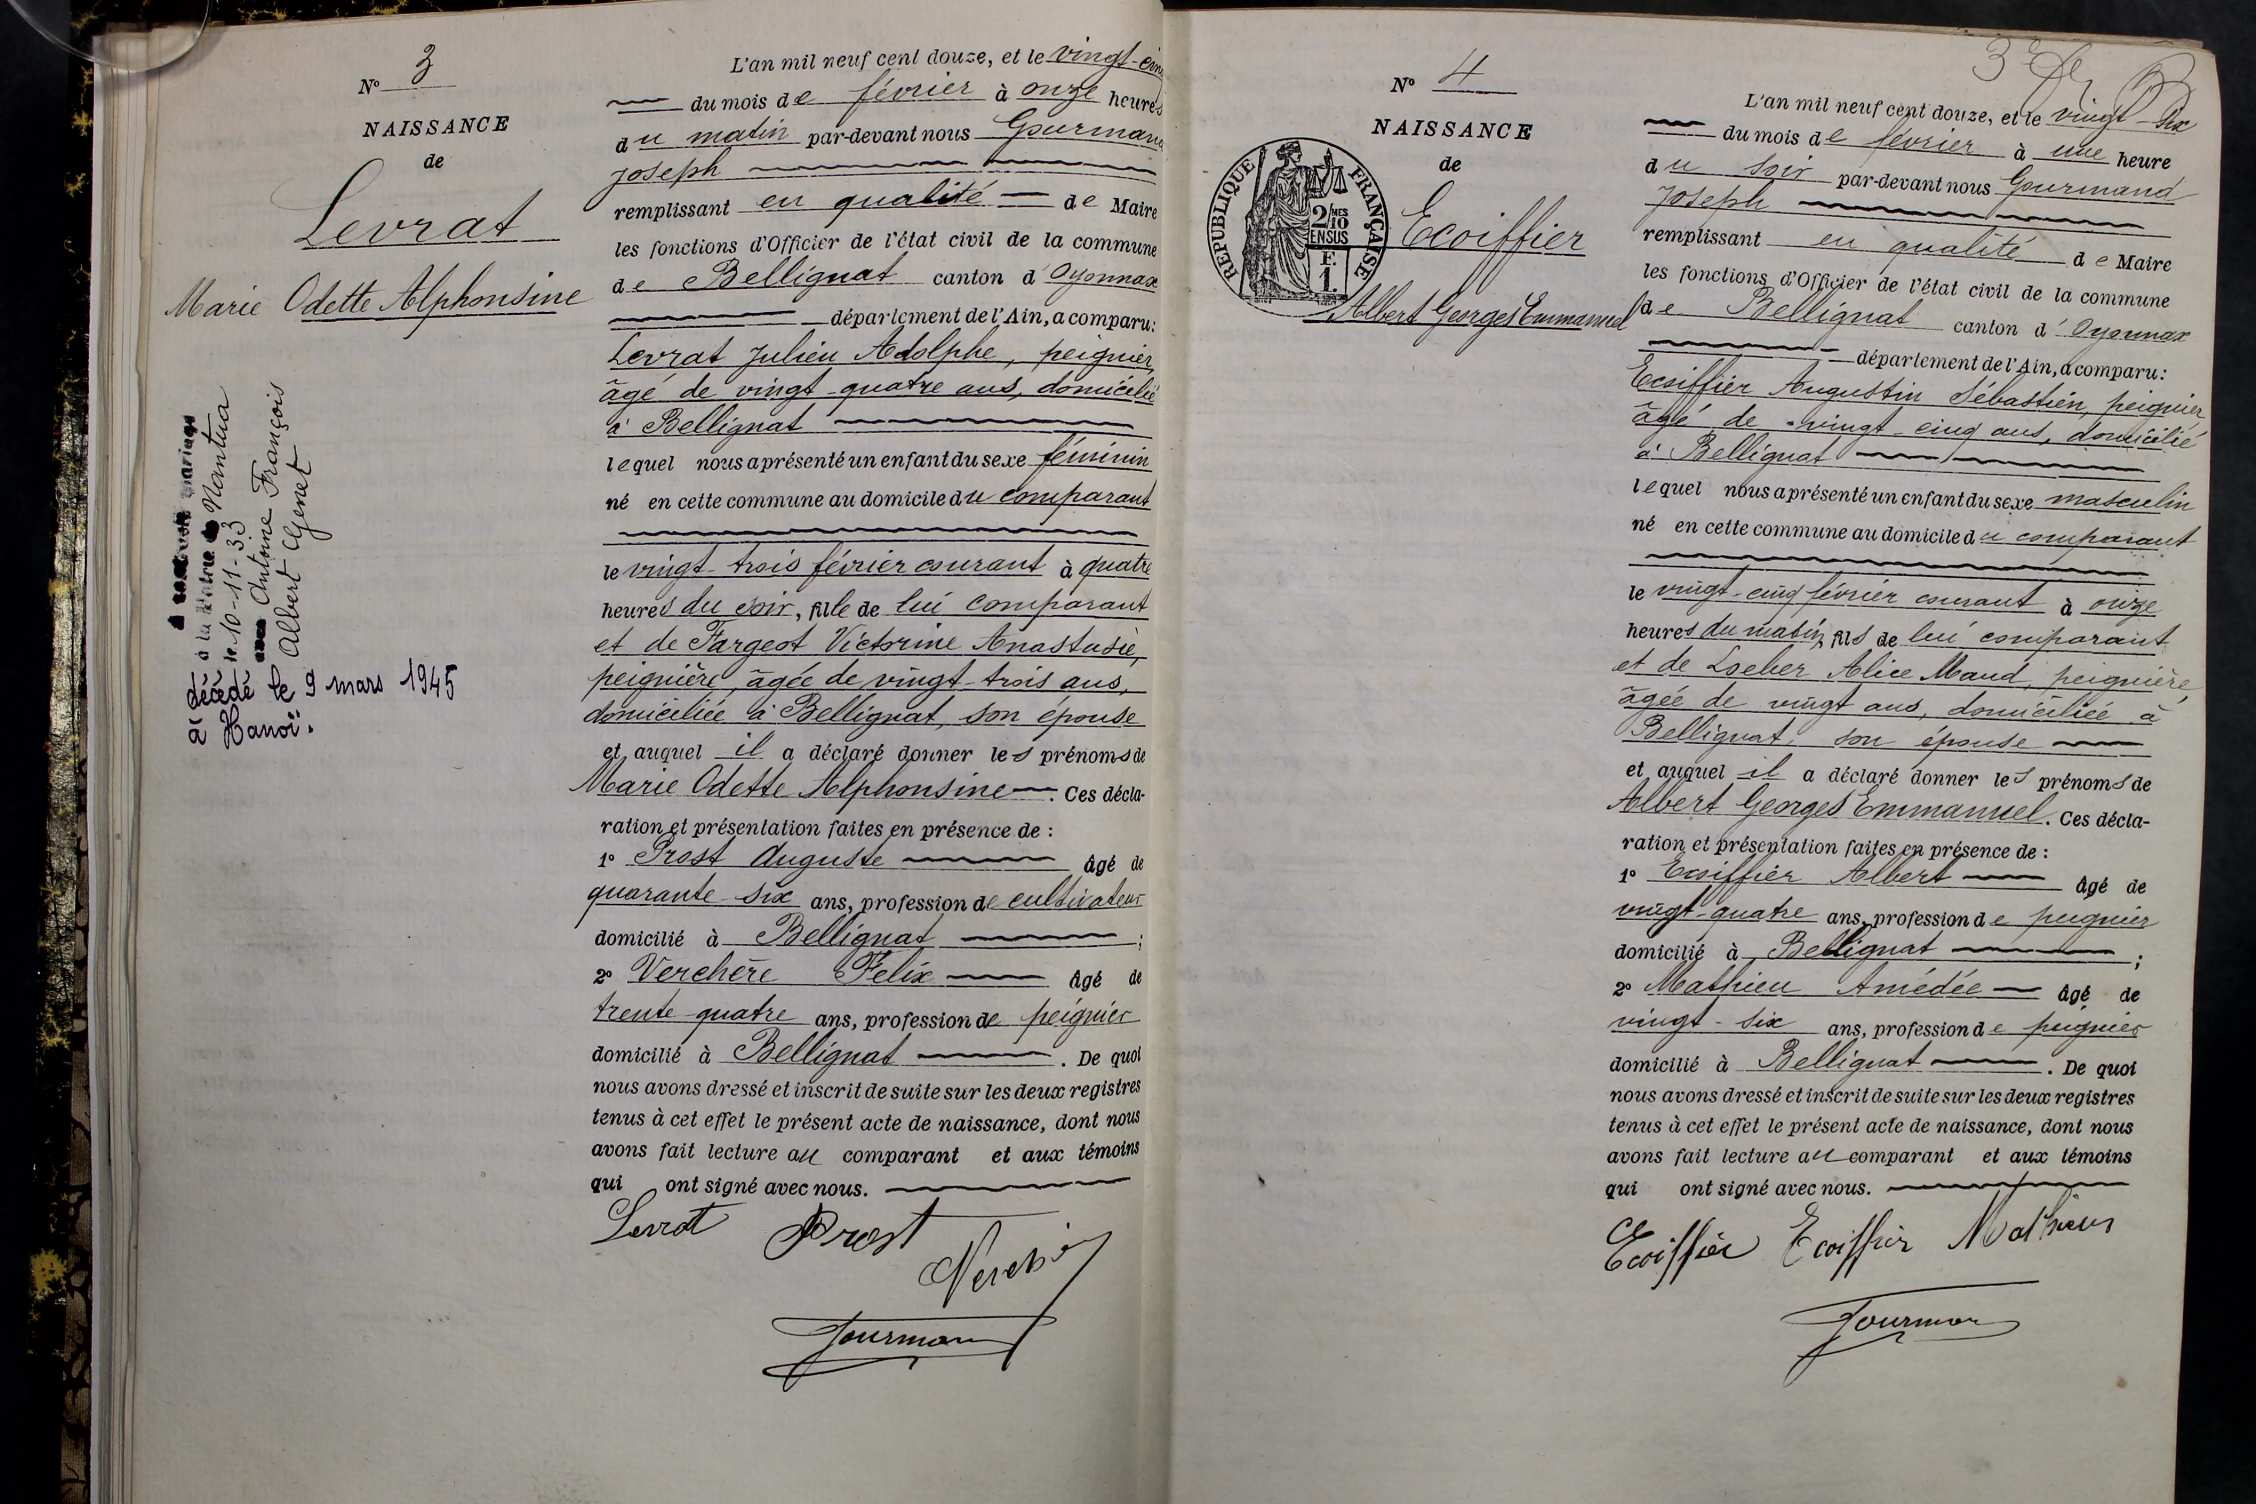 N° 3
NAISSANCE
de
Levrat
Marie Odette Alphonsine
mariage
à la Mairie de Nantua
le 10-11-33
avec Antoine François
Albert Genet
décédé le 9 mars 1945
à Hanoï.
L'an mil neuf cent douze, et le vingt-cinq
du mois de février à onze heures
du matin par-devant nous Gourmand
Joseph
remplissant en qualité de Maire
les fonctions d'Officier de l'état civil de la commune
de Bellignat canton d'Oyonnax
département de l'Ain, a comparu:
Levrat Julien Adolphe, peignier,
âgé de vingt-quatre ans, domicilié
à Bellignat
lequel nous a présenté un enfant du sexe féminin
né en cette commune au domicile du comparant
le vingt-trois février courant à quatre
heures du soir, fille de lui comparant
et de Fargeot Victorine Anastasie,
peignière, âgée de vingt-trois ans,
domiciliée à Bellignat, son épouse
et auquel il a déclaré donner les prénoms de
Marie Odette Alphonsine. Ces décla-
ration et présentation faites en présence de :
1° Prost Auguste âgé de
quarante-six ans, profession de cultivateur
domicilié à Bellignat ;
2° Verchère Félix âgé de
trente-quatre ans, profession de peignier
domicilié à Bellignat. De quoi
nous avons dressé et inscrit de suite sur les deux registres
tenus à cet effet le présent acte de naissance, dont nous
avons fait lecture au comparant et aux témoins
qui ont signé avec nous.
Levrat Prost
Gourmand
N° 4
NAISSANCE
de
RÉPUBLIQUE FRANÇAISE
2/MES
10
EN SUS
F.
1.
Ecoiffier
Albert Georges Emmanuel
L'an mil neuf cent douze, et le vingt-six
du mois de février à une heure
du soir par-devant nous Gourmand
Joseph
remplissant en qualité de Maire
les fonctions d'Officier de l'état civil de la commune
de Bellignat canton d'Oyonnax
département de l'Ain, a comparu:
Ecoiffier Augustin Sébastien, peignier
âgé de vingt-cinq ans, domicilié
à Bellignat
lequel nous a présenté un enfant du sexe masculin
né en cette commune au domicile du comparant
le vingt-cinq février courant à onze
heures du matin, fils de lui comparant
et de Loeber Alice Maud, peignière,
âgée de vingt ans, domiciliée à
Bellignat, son épouse
et auquel il a déclaré donner les prénoms de
Albert Georges Emmanuel. Ces décla-
ration et présentation faites en présence de :
1° Ecoiffier Albert âgé de
vingt-quatre ans, profession de peignier
domicilié à Bellignat ;
2° Mathieu Amédée âgé de
vingt-six ans, profession de peignier
domicilié à Bellignat. De quoi
nous avons dressé et inscrit de suite sur les deux registres
tenus à cet effet le présent acte de naissance, dont nous
avons fait lecture au comparant et aux témoins
qui ont signé avec nous.
Ecoiffier Ecoiffier Mathieu
Gourmand